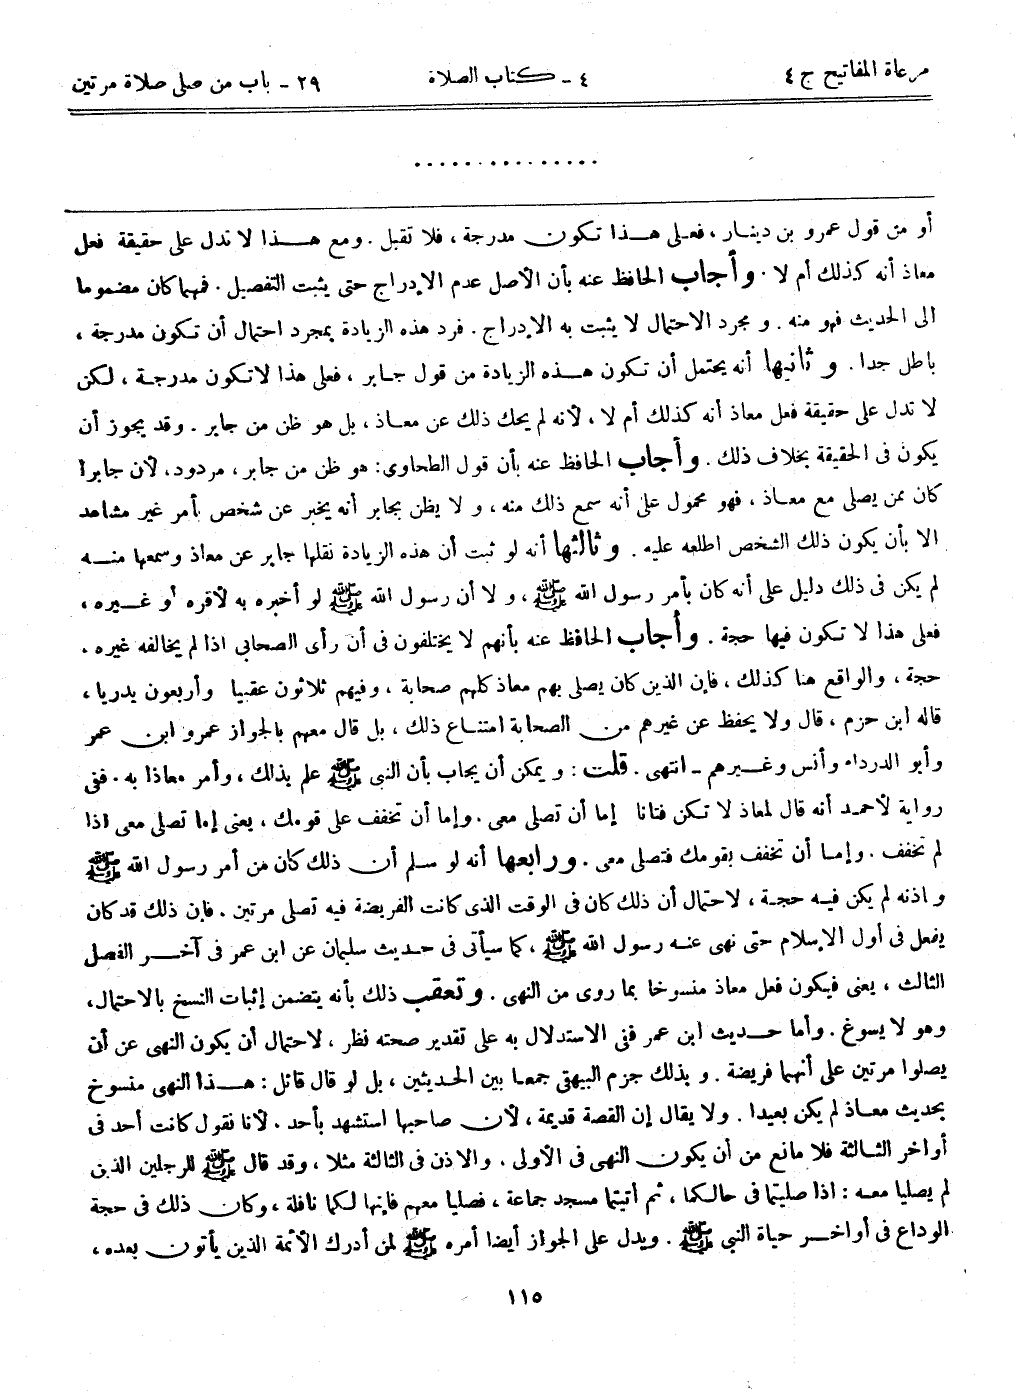 مرعاة المفاتيح ج ٤
٤ - كتاب الصلاة
٢٩ - باب من صلى صلاة مرتين
...............
أو من قول عمرو بن دينار ، فعلى هذا تكون مدرجة ، فلا تقبل . ومع هذا لا تدل على حقيقة فعل
معاذ أنه كذلك أم لا . وأجاب الحافظ عنه بأن الأصل عدم الإدراج حتى يثبت التفصيل . فمهما كان مضموما
الى الحديث فهو منه . و مجرد الاحتمال لا يثبت به الإدراج . فرد هذه الزيادة بمجرد احتمال أن تكون مدرجة ،
باطل جدا . و ثانيها أنه يحتمل أن تكون هذه الزيادة من قول جابر ، فعلى هذا لا تكون مدرجة ، لكن
لا تدل على حقيقة فعل معاذ أنه كذلك أم لا ، لأنه لم يحك ذلك عن معاذ ، بل هو ظن من جابر . وقد يجوز أن
يكون فى الحقيقة بخلاف ذلك . وأجاب الحافظ عنه بأن قول الطحاوى : هو ظن من جابر ، مردود، لأن جابرا
كان ممن يصلى مع معاذ ، فهو محمول على أنه سمع ذلك منه ، و لا يظن بجابر أنه يخبر عن شخص بأمر غير مشاهد
الا بأن يكون ذلك الشخص اطلعه عليه . وثالثها أنه لو ثبت أن هذه الزيادة نقلها جابر عن معاذ وسمعها منه
لم يكن فى ذلك دليل على أنه كان بأمر رسول الله ﷺ ، و لا أن رسول الله ﷺ لو أخبره به لأقره أو غيره ،
فعلى هذا لا تكون فيها حجة . وأجاب الحافظ عنه بأنهم لا يختلفون فى أن رأى الصحابى اذا لم يخالفه غيره .
حجة ، والواقع هنا كذلك ، فإن الذين كان يصلى بهم معاذ كلهم صحابة ، وفيهم ثلاثون عقبيا وأربعون بدريا ،
قاله ابن حزم ، قال ولا يحفظ عن غيرهم من الصحابة امتناع ذلك ، بل قال معهم بالجواز عمرو ابن عمر
وأبو الدرداء وأنس وغيرهم - انتهى . قلت : و يمكن أن يجاب بأن النبى ﷺ علم بذلك ، وأمر معاذا به . ففى
رواية لأحمد أنه قال لمعاذ لا تكن فتانا إما أن تصلى معى . وإما أن تخفف على قومك ، يعنى إما تصلى معى اذا
لم تخفف . وإما أن تخفف بقومك فتصلى معى . ورابعها أنه لو سلم أن ذلك كان من أمر رسول الله ﷺ
و اذنه لم يكن فيه حجة ، لاحتمال أن ذلك كان فى الوقت الذى كانت الفريضة فيه تصلى مرتين . فإن ذلك قد كان
يفعل فى أول الإسلام حتى نهى عنه رسول الله ﷺ ، كما سيأتى فى حديث سليمان عن ابن عمر فى آخر الفصل
الثالث ، يعنى فيكون فعل معاذ منسوخا بما روى من النهى . وتعقب ذلك بأنه يتضمن إثبات النسخ بالاحتمال،
وهو لا يسوغ . وأما حديث ابن عمر ففى الاستدلال به على تقدير صحته نظر ، لاحتمال أن يكون النهى عن أن
يصلوا مرتين على أنهما فريضة . و بذلك جزم البيهقى جمعا بين الحديثين ، بل لو قال قائل : هذا النهى منسوخ
بحديث معاذ لم يكن بعيدا . ولا يقال إن القصة قديمة ، لأن صاحبها استشهد بأحد . لأنا نقول كانت أحد فى
أواخر الثالثة فلا مانع من أن يكون النهى فى الأولى . والاذن فى الثالثة مثلا ، وقد قال ﷺ للرجلين الذين
لم يصليا معه : اذا صليتما فى رحالكما ، ثم أتيتما مسجد جماعة ، فصليا معهم فإنها لكما نافلة ، وكان ذلك فى حجة
الوداع فى أواخر حياة النبى ﷺ . ويدل على الجواز أيضا أمره ﷺ لمن أدرك الأئمة الذين يأتون بعده ،
١١٥